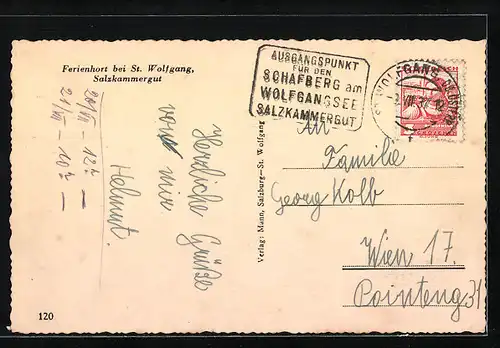 Ferienhort bei St. Wolfgang,
Salzkammergut
AUSGANGSPUNKT
FÜR DEN
SCHAFBERG am
WOLFGANGSEE
SALZKAMMERGUT
ST. WOLFGANG
Herzliche Grüße
von mir
Helmut.
20/VII – 12.-
21/VII – 10.-
Verlag: Mann, Salzburg–St. Wolfgang
An
Familie
Georg Kolb
Wien 17.
Pointeng 31
120